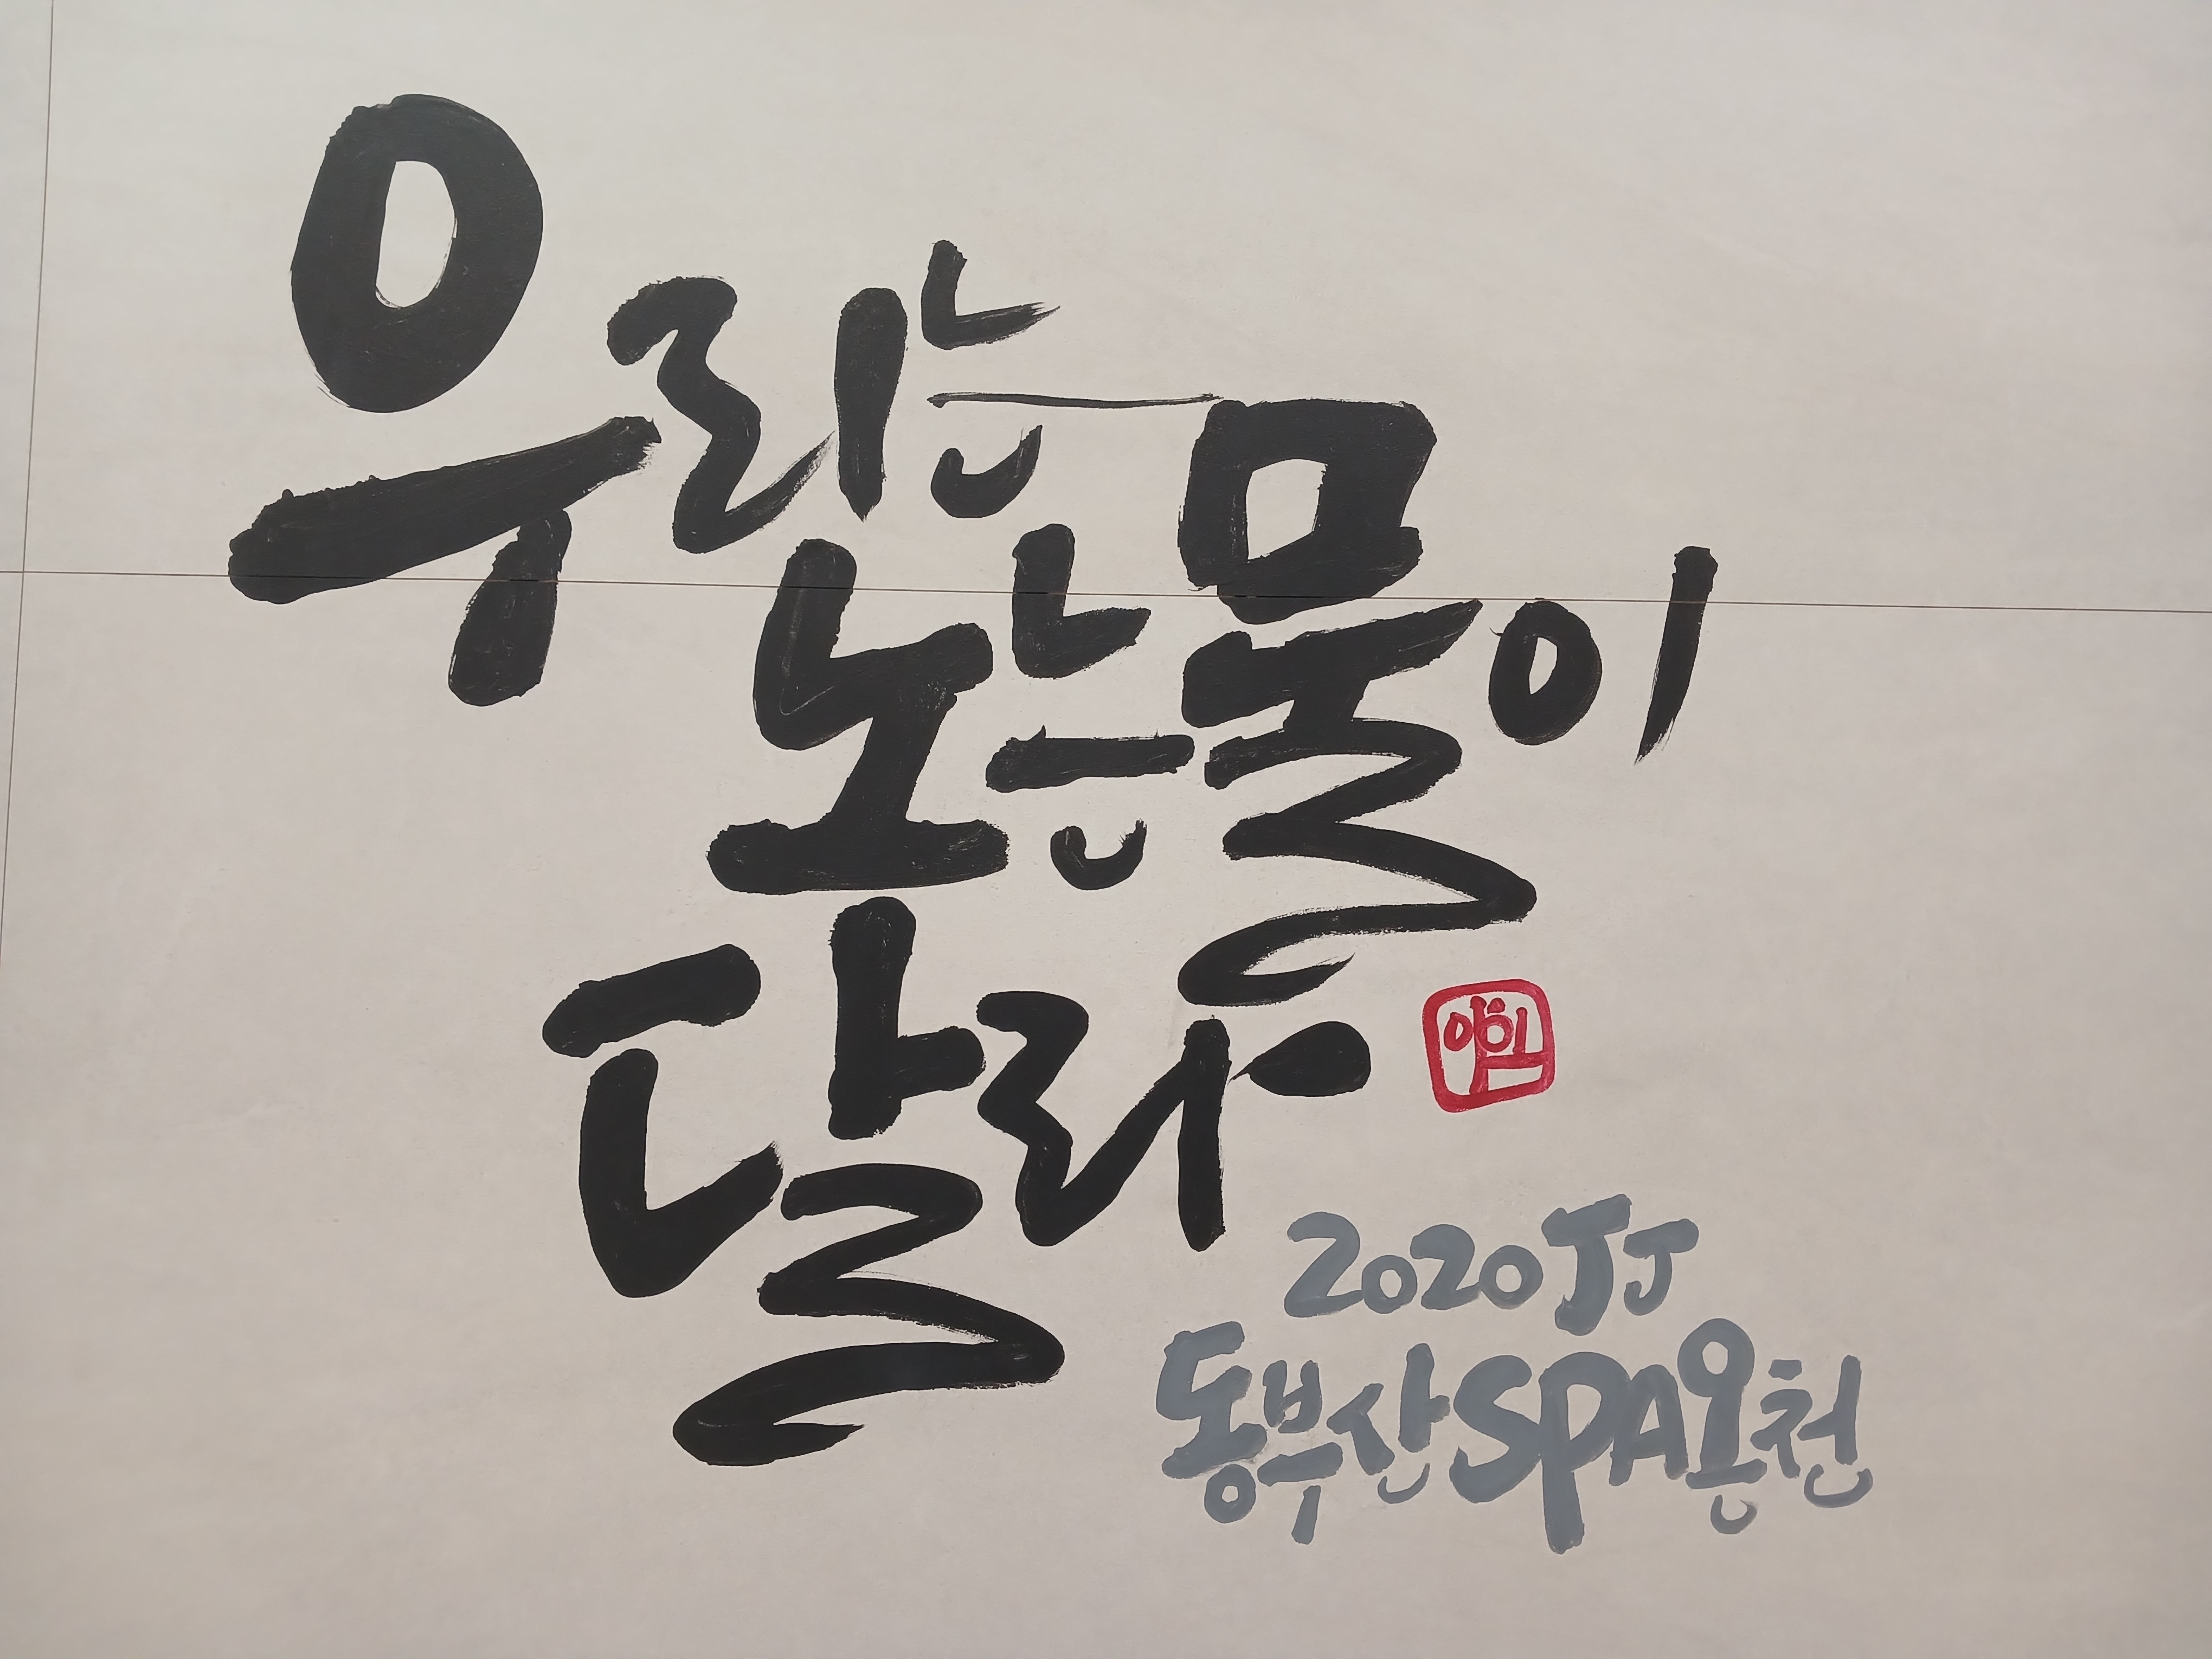 우리는
노는물이
달라
2020 JJ
동부산SPA온천